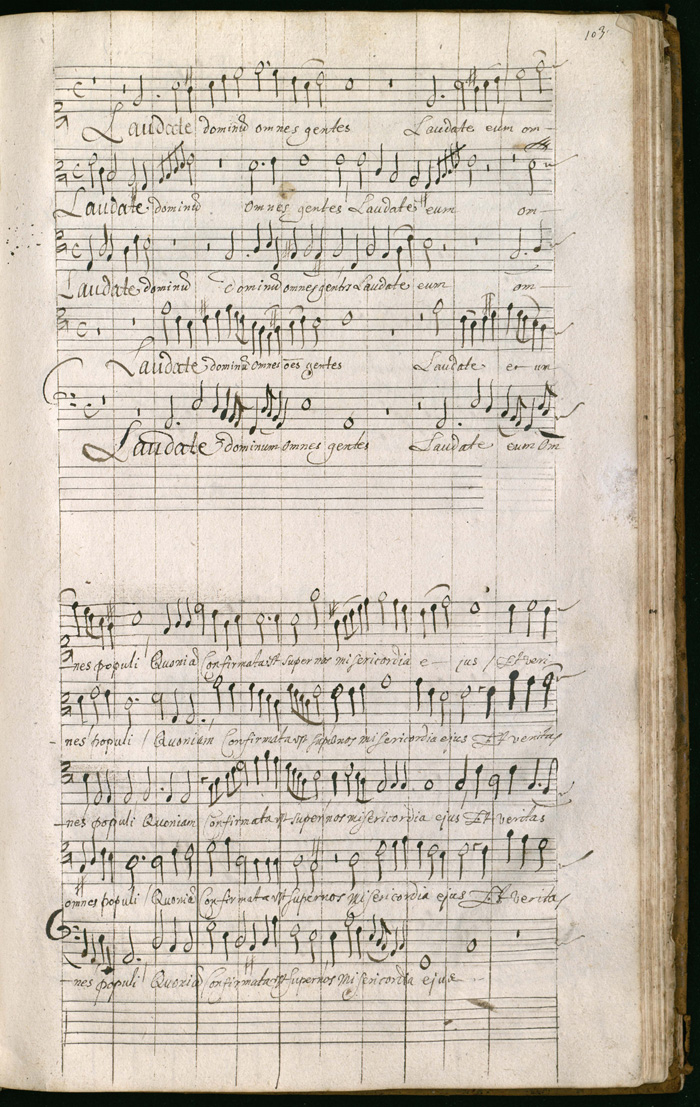 103.
Laudate dominũ omnes gentes Laudate eum om-
Laudate dominũ omnes gentes Laudate eum om-
Laudate dominũ dominũ omnes gentes Laudate eum om
Laudate dominũ omnes oẽs gentes Laudate
Laudate dominum omnes gentes Laudate eum om
nes populi / Quoniã Confirmata est super nos misericordia e- jus / Et veri
nes populi / Quoniam Confirmata est super nos misericordia ejus Et veritas
-nes populi Quoniam Confirmata est super nos misericordia ejus Et veritas
omnes populi / Quoniã Confirmata est super nos misericordia ejus Et veritas
-nes populi / Quoniã Confirmata est super nos misericordia ejus